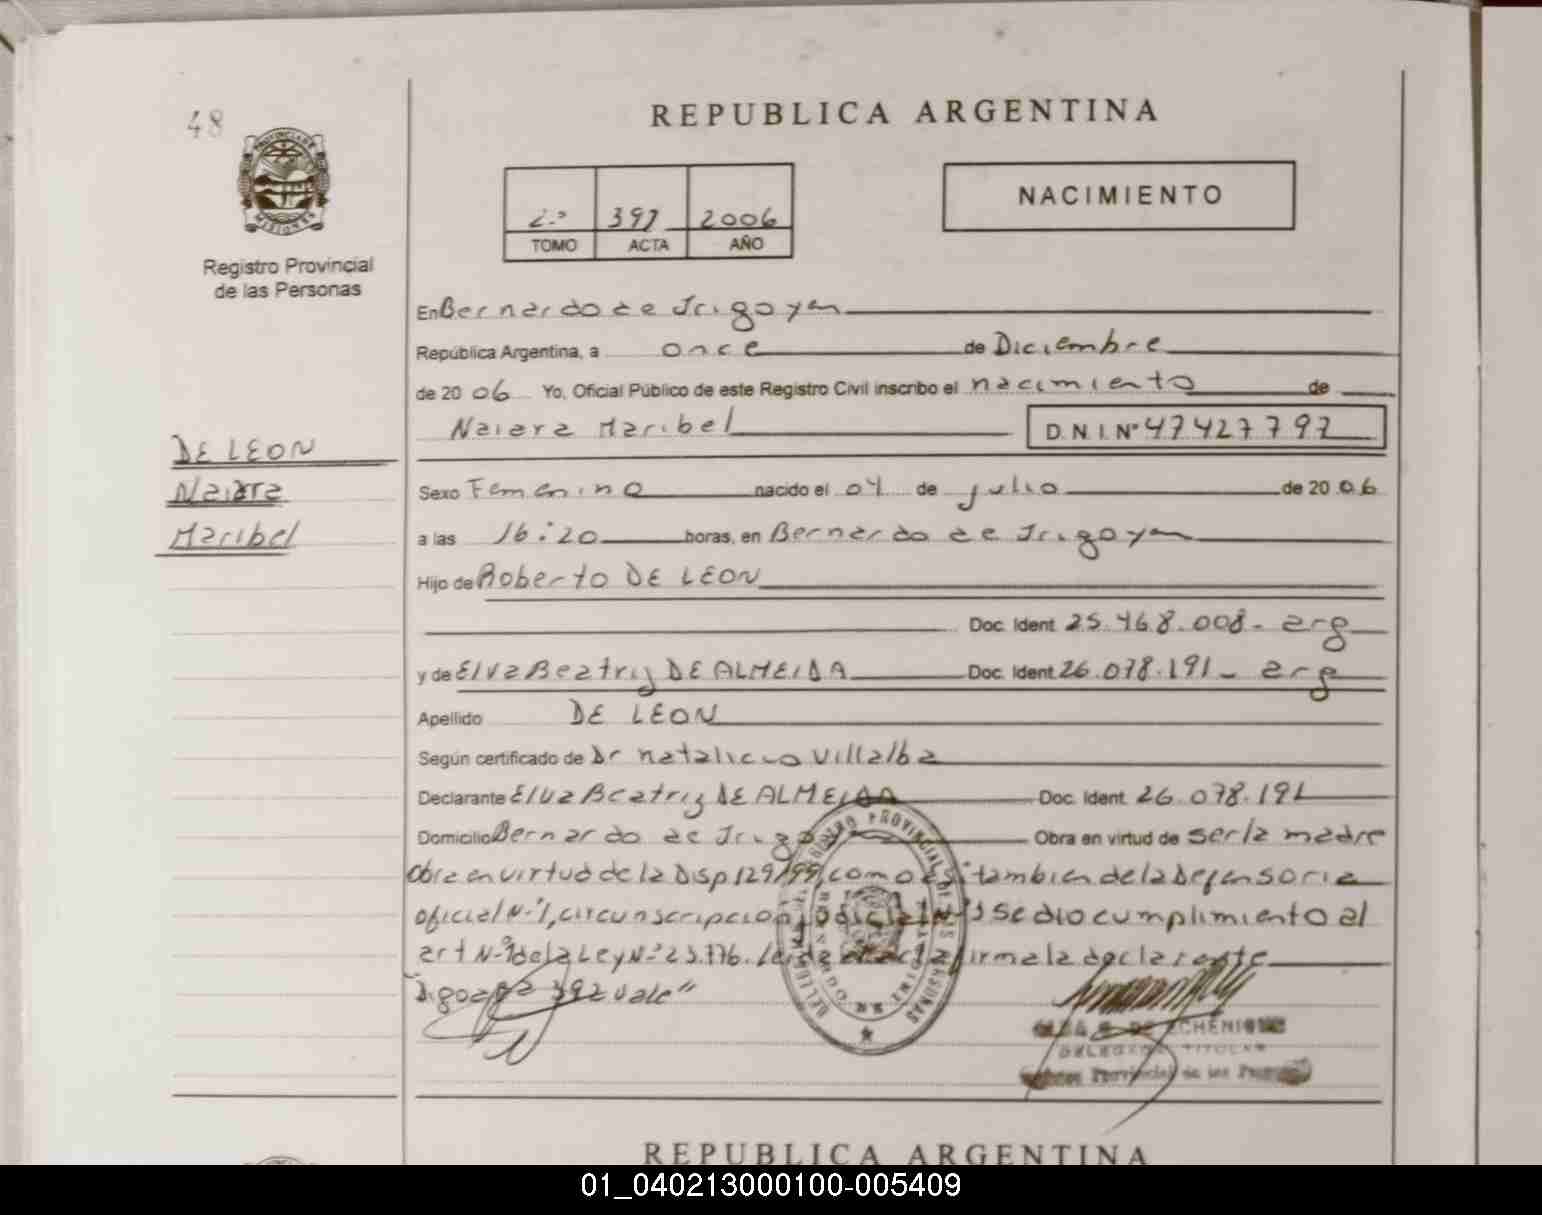 48
REPUBLICA ARGENTINA
PROVINCIA DE MISIONES
Registro Provincial
de las Personas
2º 397 2006
TOMO ACTA AÑO
NACIMIENTO
En Bernardo de Irigoyen
República Argentina, a once de Diciembre
de 2006 Yo, Oficial Público de este Registro Civil inscribo el nacimiento de
Naiara Maribel D.N.I. Nº 47427797
DE LEON
Naiara
Maribel
Sexo Femenino nacido el 04 de julio de 2006
a las 16:20 horas, en Bernardo de Irigoyen
Hijo de Roberto DE LEON
Doc. Ident. 25.468.008- arg
y de Elva Beatriz DE ALMEIDA Doc. Ident. 26.078.191- arg
Apellido DE LEON
Según certificado de Dr natalicio Villalba
Declarante Elva Beatriz DE ALMEIDA Doc. Ident. 26.078.191
Domicilio Bernardo de Irigo Obra en virtud de ser la madre
Obra en virtud de la Disp 129/99, como así tambien de la Defensoria
oficial N-1, circunscripcion Judicial N-3 se dio cumplimiento al
art Nº de la Ley N-º 23.776. Leida el acta firma la declarante
"Digo 392 vale"
DE ECHENIQUE
DELEGADA TITULAR
Registro Provincial de las Personas
REPUBLICA ARGENTINA
01_040213000100-005409